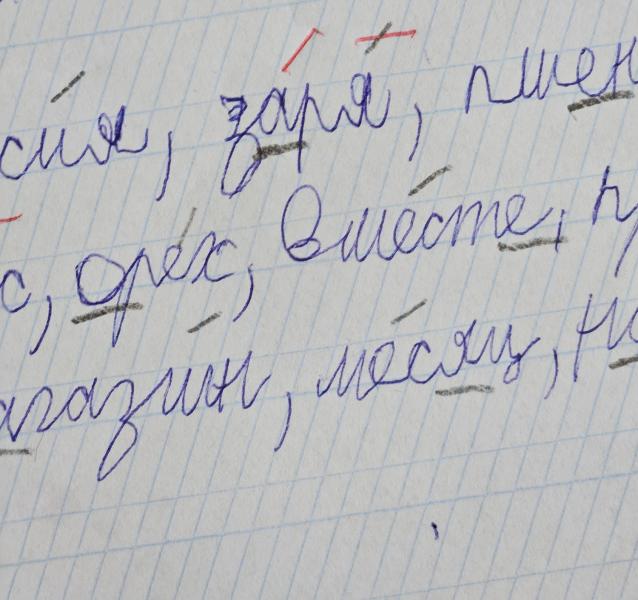 сия, заря, пшен
с, орех, вместе, п
агазин, месяц, но